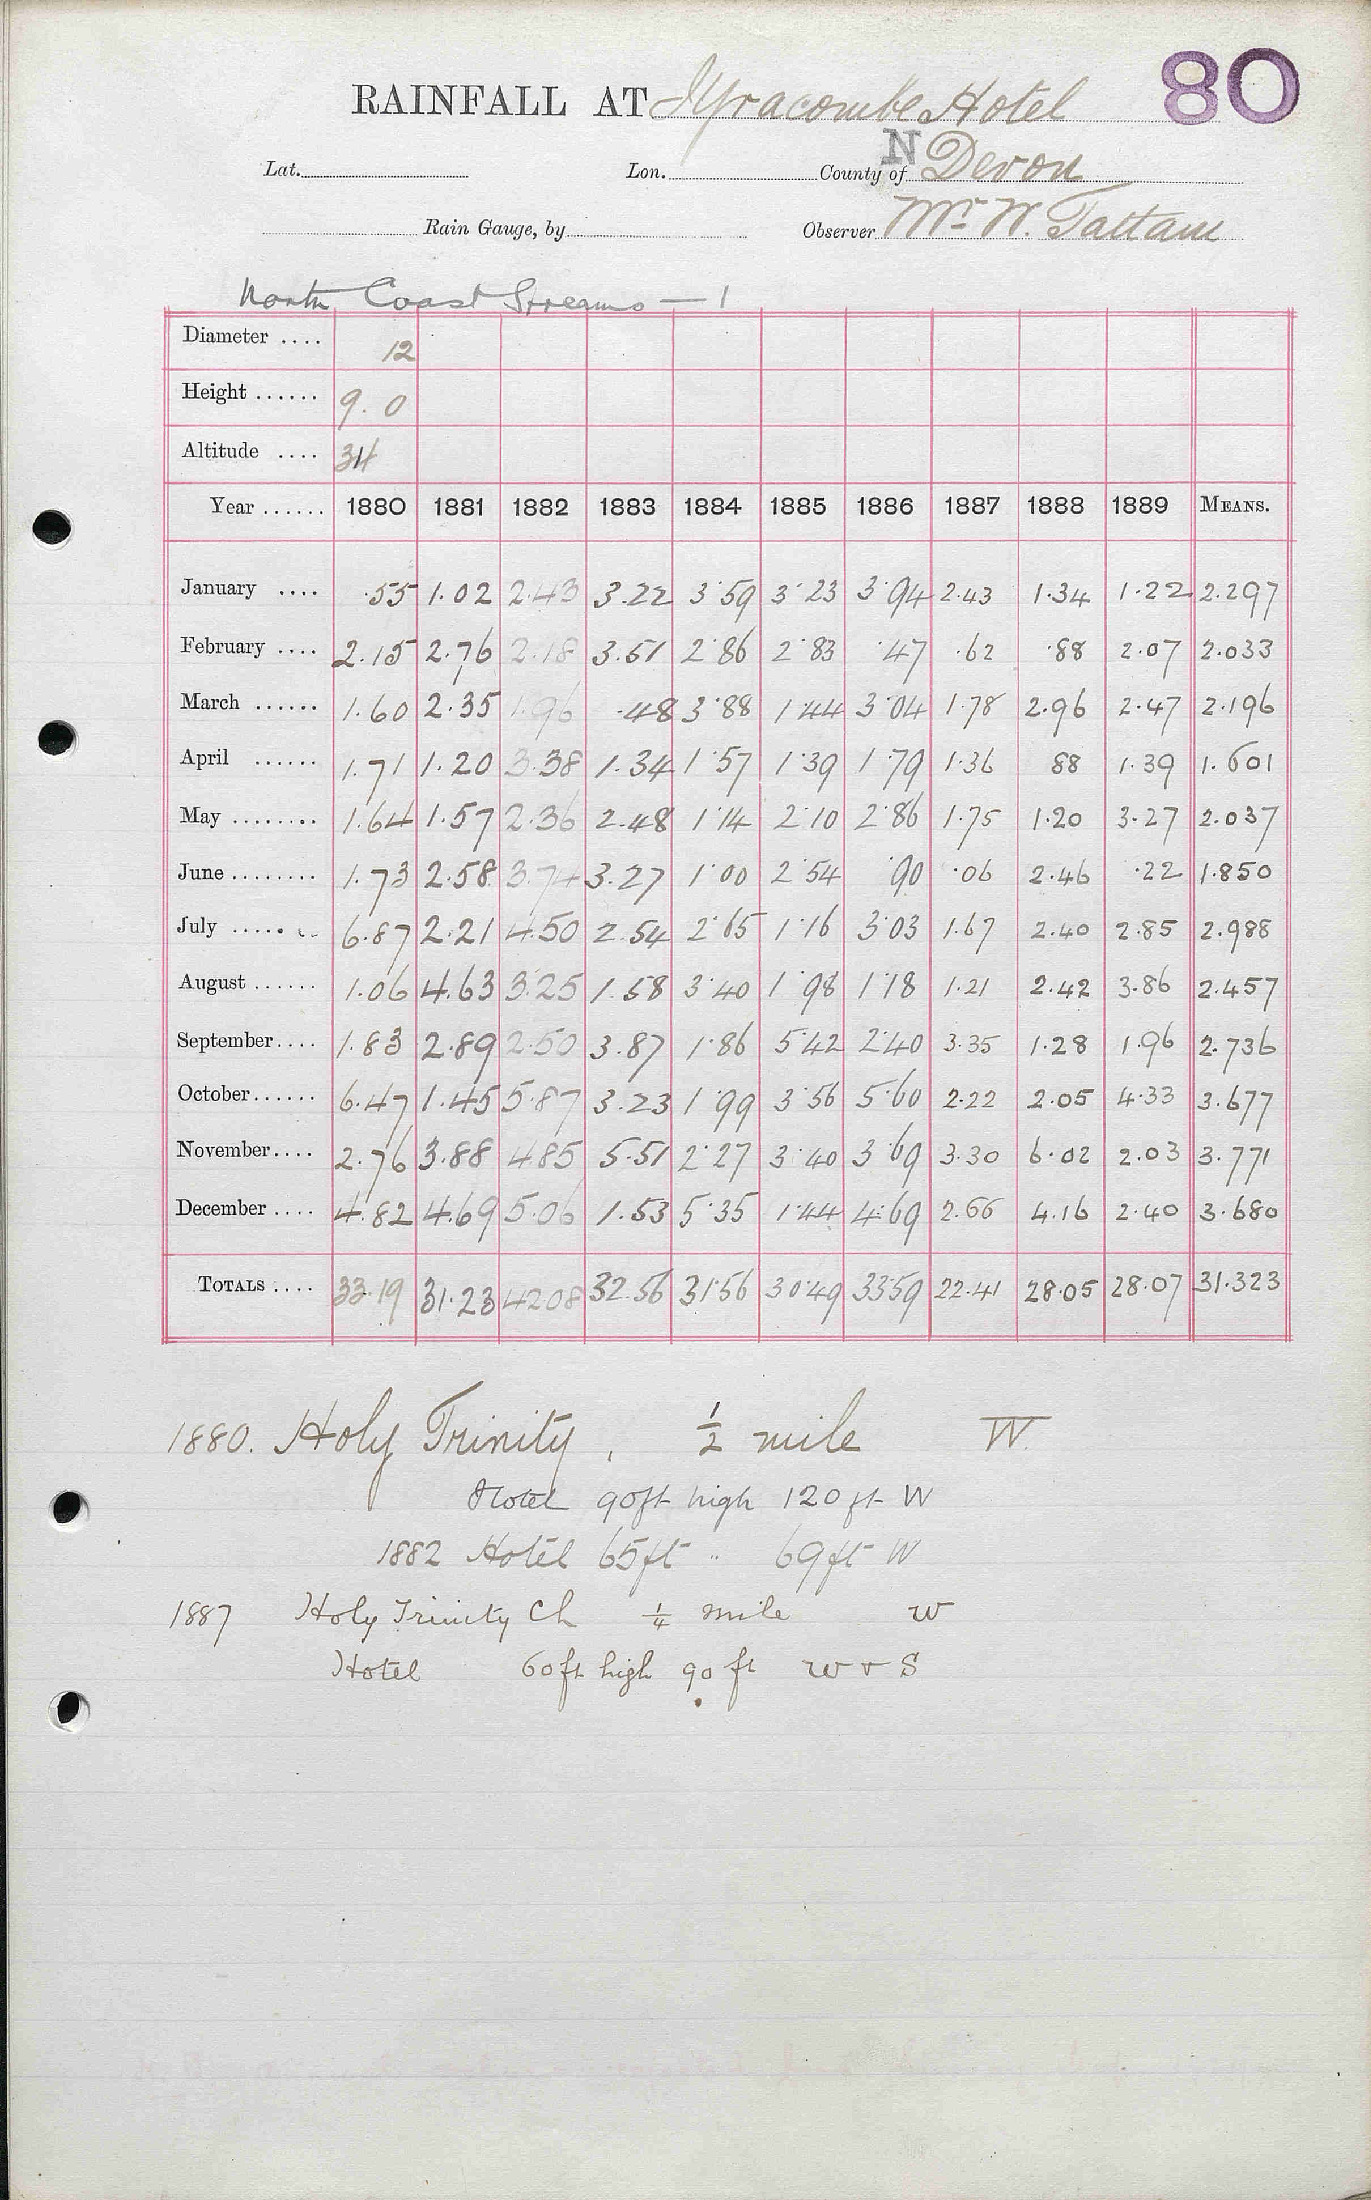 80
RAINFALL AT Ilfracombe Hotel
Lat. Lon. County of N Devon
Rain Gauge, by Observer Mr. W. Tattam
North Coast Streams — 1
Diameter .... 12
Height ...... 9. 0
Altitude .... 34
Year ...... 1880 1881 1882 1883 1884 1885 1886 1887 1888 1889 MEANS.
January .... .55 1.02 2.43 3.22 3.59 3.23 3.94 2.43 1.34 1.22 2.297
February .... 2.15 2.76 2.18 3.51 2.86 2.83 .47 .62 .88 2.07 2.033
March ...... 1.60 2.35 1.96 .48 3.88 1.44 3.04 1.78 2.96 2.47 2.196
April ...... 1.71 1.20 3.38 1.34 1.57 1.39 1.79 1.36 88 1.39 1.601
May ........ 1.64 1.57 2.36 2.48 1.14 2.10 2.86 1.75 1.20 3.27 2.037
June ........ 1.73 2.58 3.74 3.27 1.00 2.54 .90 .06 2.46 .22 1.850
July ........ 6.87 2.21 4.50 2.54 2.65 1.16 3.03 1.67 2.40 2.85 2.988
August ...... 1.06 4.63 3.25 1.58 3.40 1.98 1.18 1.21 2.42 3.86 2.457
September .... 1.83 2.89 2.50 3.87 1.86 5.42 2.40 3.35 1.28 1.96 2.736
October ...... 6.47 1.45 5.87 3.23 1.99 3.56 5.60 2.22 2.05 4.33 3.677
November .... 2.76 3.88 4.85 5.51 2.27 3.40 3.69 3.30 6.02 2.03 3.771
December .... 4.82 4.69 5.06 1.53 5.35 1.44 4.69 2.66 4.16 2.40 3.680
TOTALS .... 33.19 31.23 42.08 32.56 31.56 30.49 33.59 22.41 28.05 28.07 31.323
1880. Holy Trinity, ½ mile W.
Hotel 90ft high 120 ft W
1882 Hotel 65ft " 69ft W
1887 Holy Trinity Ch ¼ mile W
Hotel 60ft high 90 ft W + S